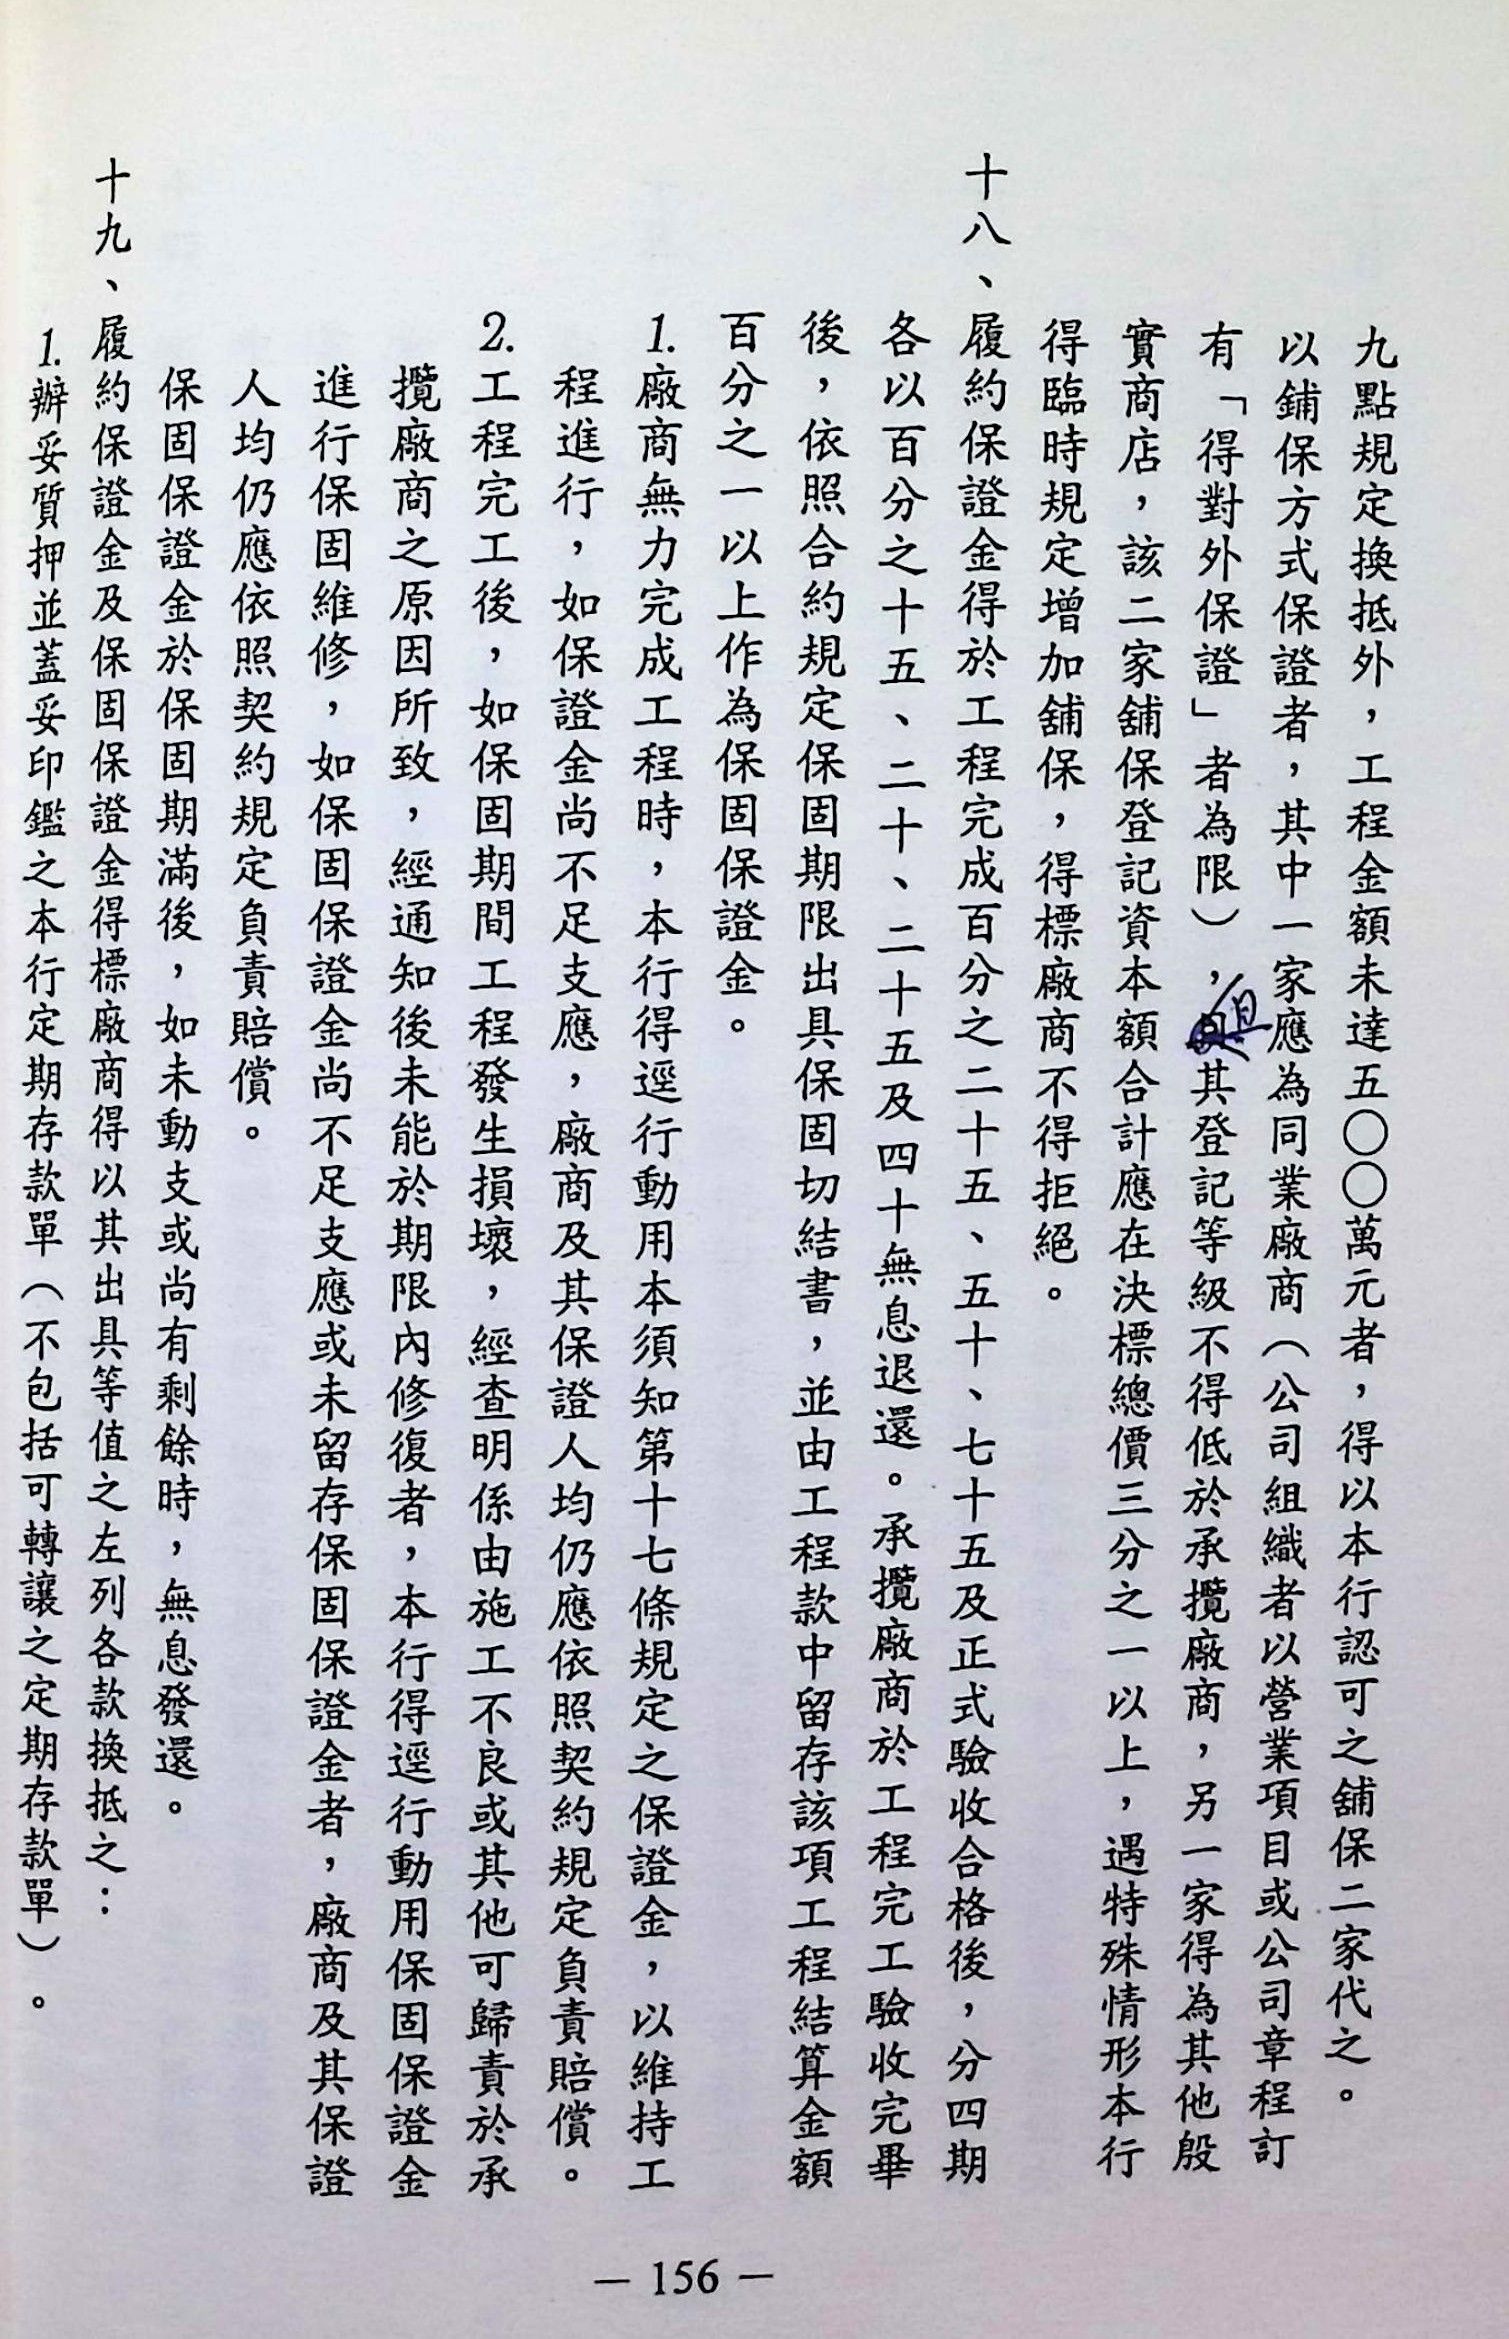 九點規定換抵外，工程金額未達五〇〇萬元者，得以本行認可之舖保二家代之。
以鋪保方式保證者，其中一家應為同業廠商（公司組織者以營業項目或公司章程訂
有「得對外保證」者為限），且其登記等級不得低於承攬廠商，另一家得為其他殷
實商店，該二家舖保登記資本額合計應在決標總價三分之一以上，遇特殊情形本行
得臨時規定增加舖保，得標廠商不得拒絕。
十八、履約保證金得於工程完成百分之二十五、五十、七十五及正式驗收合格後，分四期
各以百分之十五、二十、二十五及四十無息退還。承攬廠商於工程完工驗收完畢
後，依照合約規定保固期限出具保固切結書，並由工程款中留存該項工程結算金額
百分之一以上作為保固保證金。
1.廠商無力完成工程時，本行得逕行動用本須知第十七條規定之保證金，以維持工
程進行，如保證金尚不足支應，廠商及其保證人均仍應依照契約規定負責賠償。
2.工程完工後，如保固期間工程發生損壞，經查明係由施工不良或其他可歸責於承
攬廠商之原因所致，經通知後未能於期限內修復者，本行得逕行動用保固保證金
進行保固維修，如保固保證金尚不足支應或未留存保固保證金者，廠商及其保證
人均仍應依照契約規定負責賠償。
保固保證金於保固期滿後，如未動支或尚有剩餘時，無息發還。
十九、履約保證金及保固保證金得標廠商得以其出具等值之左列各款換抵之：
1.辦妥質押並蓋妥印鑑之本行定期存款單（不包括可轉讓之定期存款單）。
— 156 —